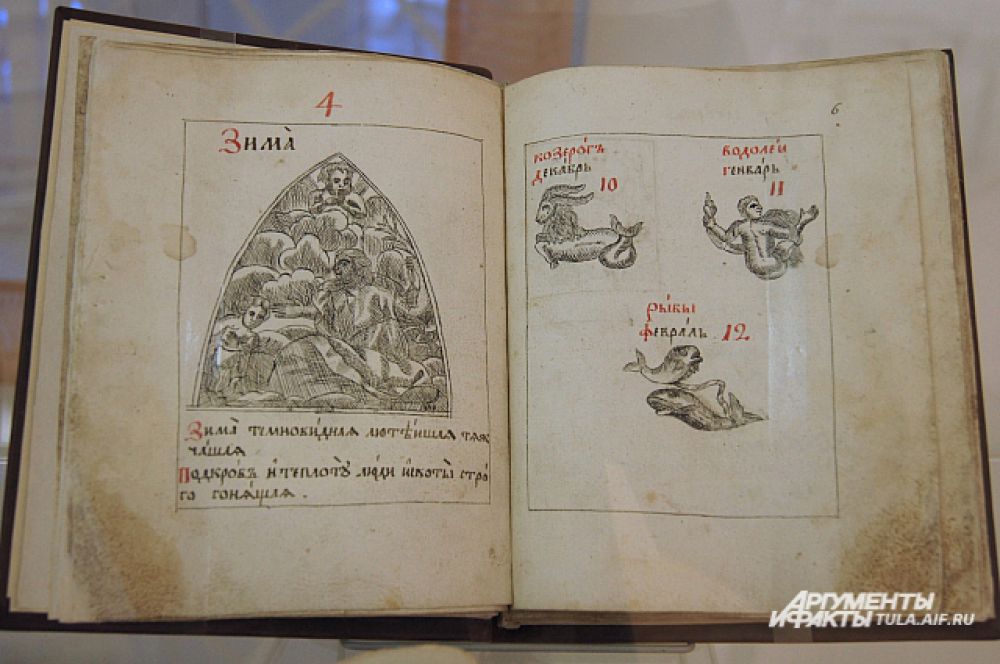 4
Зима̀
Зима̀ темнови́дная лютѣ́ишая тяж
ча́ишая
Подкровъ и теплоту̀ люди и скоты̀ стро́
го гоня́щая .
6
козеро́гъ
дека́брь
10
водоле́й
генва́рь
11
ры́бы
февра́ль 12
Аргументы
и Факты TULA.AIF.RU